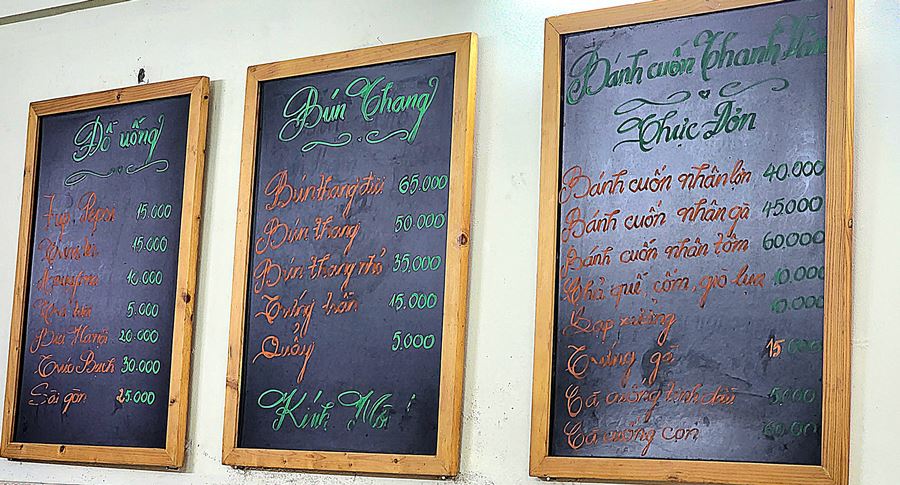 Đồ uống
7up, Pepsi 15.000
15.000
10.000
5.000
Bia Hà Nội 20.000
Trúc Bạch 30.000
Sài gòn 25.000
Bún Thang
Bún thang đùi 65.000
Bún thang 50.000
Bún thang nhỏ 35.000
Trứng trần 15.000
Quẩy 5.000
Kính Mời
Bánh cuốn Thanh Vân
Thực Đơn
Bánh cuốn nhân lợn 40.000
Bánh cuốn nhân gà 45.000
Bánh cuốn nhân tôm 60.000
Chả quế, cốm, giò lụa 10.000
Lạp xường 10.000
Trứng gà 15.000
Cà cuống tinh dầu 5.000
Cà cuống con